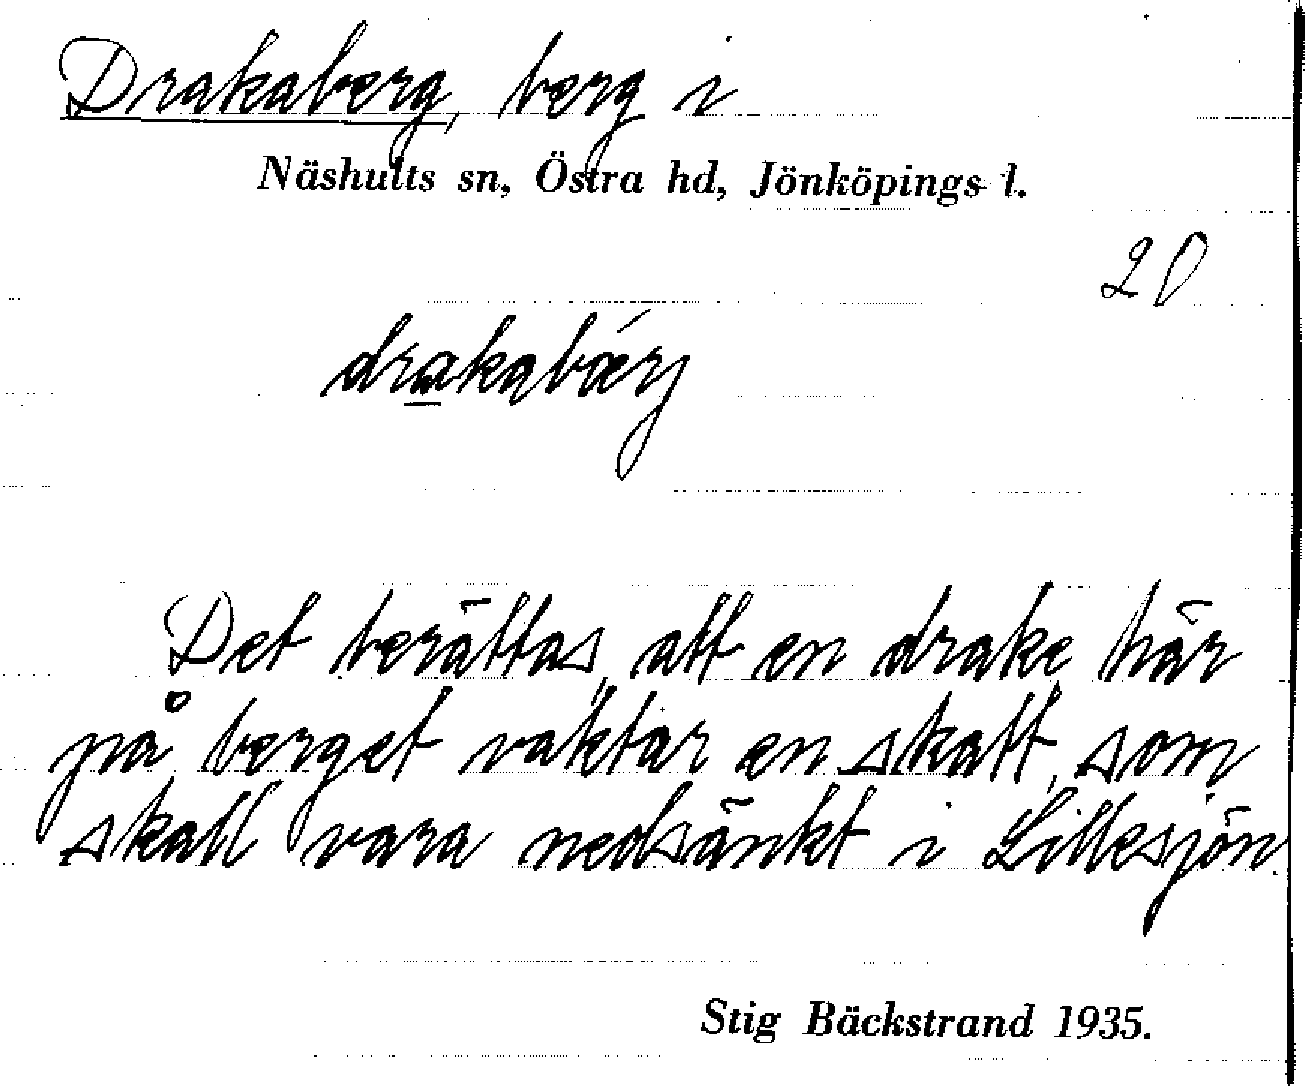 Drakaberg, berg i
Näshults sn, Östra hd, Jönköpings l.
20
drakabǽrj
Det berättas, att en drake här
på berget vaktar en skatt, som
skall vara nedsänkt i Lillesjön.
Stig Bäckstrand 1935.